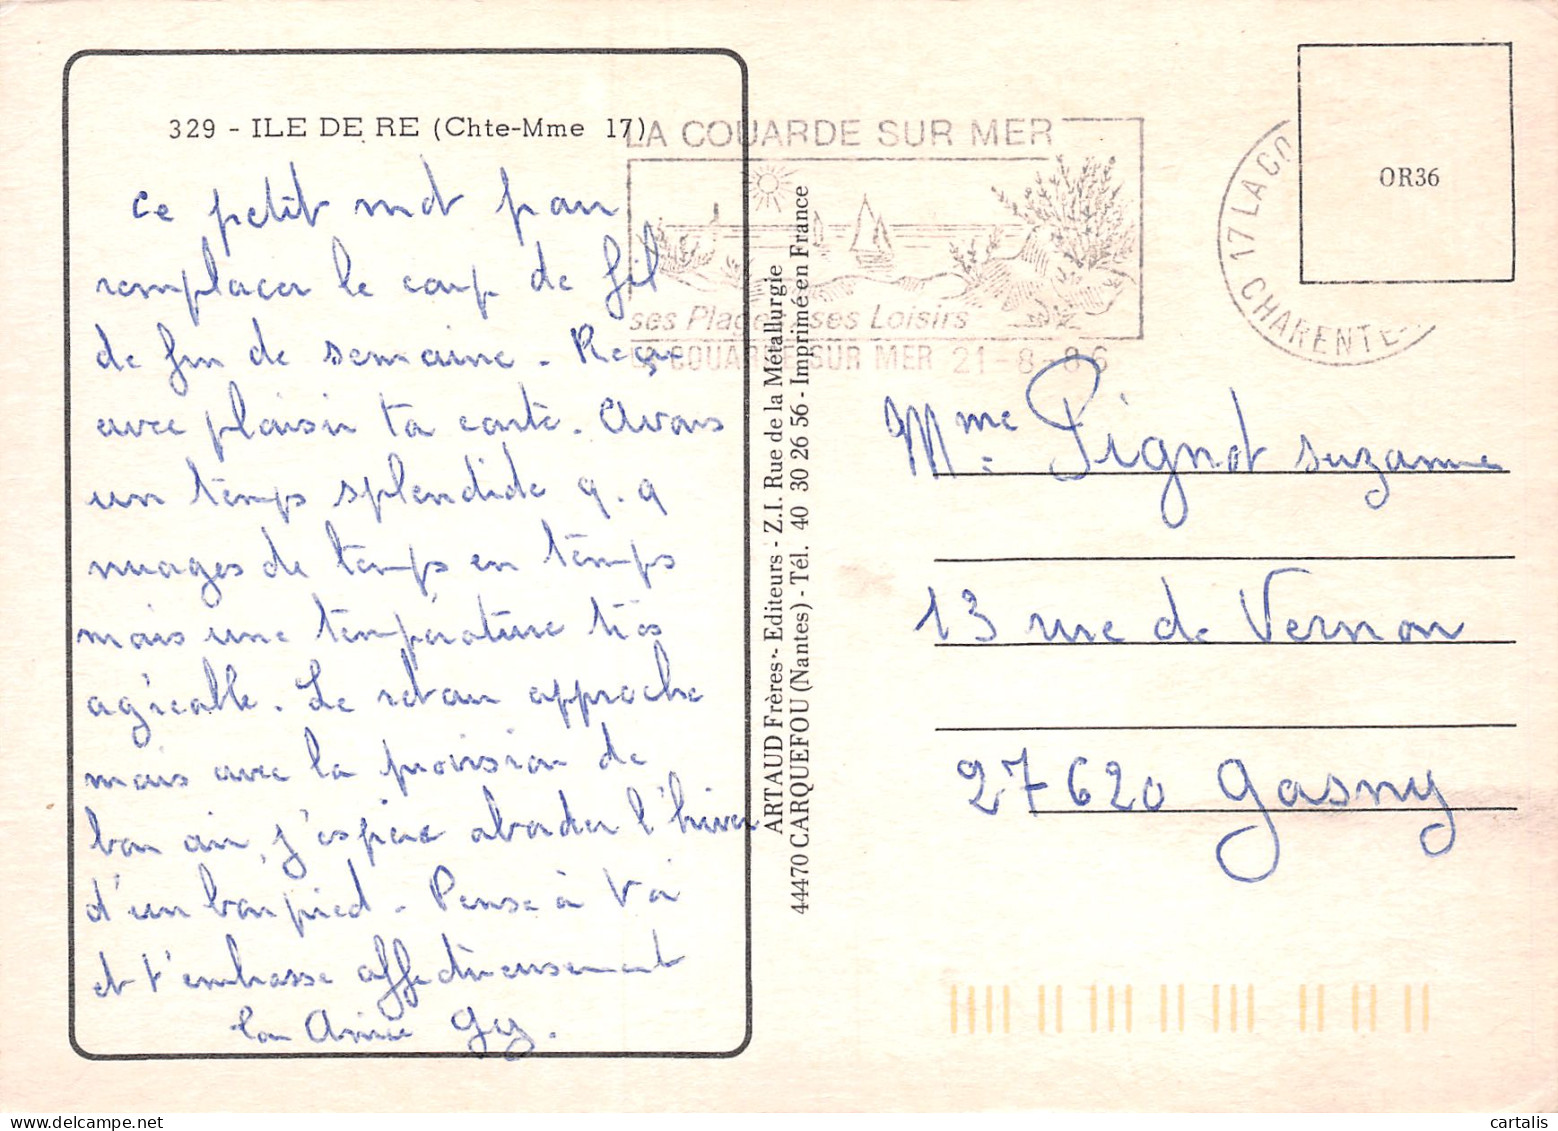 329 - ILE DE RE (Chte-Mme 17)
Ce petit mot pour
remplacer le coup de fil
de fin de semaine. Reçu
avec plaisir ta carte. Avons
un temps splendide q.q
nuages de temps en temps
mais une température très
agréable. Le retour approche
mais avec la provision de
bon air, j'espère aborder l'hiver
d'un bon pied. Pense à toi
et t'embrasse affectueusement
ton Amie
LA COUARDE SUR MER
ses Plages ses Loisirs
LA COUARDE SUR MER 21-8-86
17 LA CO
CHARENTE-
OR36
ARTAUD Frères - Editeurs - Z.I. Rue de la Métallurgie
44470 CARQUEFOU (Nantes) - Tél. 40 30 26 56 - Imprimé en France
Mme Pignot Suzanne
13 rue de Vernon
27620 Gasny
cartalis